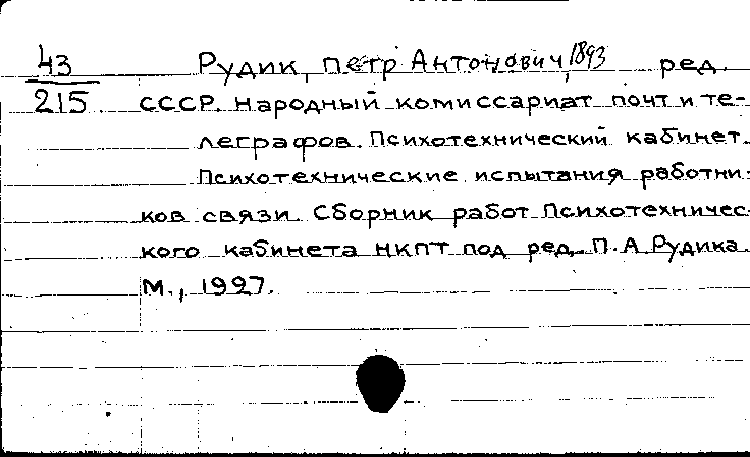 43 Рудик, Петр Антонович, 1893 ред.
215 СССР. Народный комиссариат почт и те-
леграфов. Психотехнический кабинет.
Психотехнические испытания работни-
ков связи. Сборник работ Психотехничес
кого кабинета НКПТ под ред. П.А.Рудика.
М., 1927.